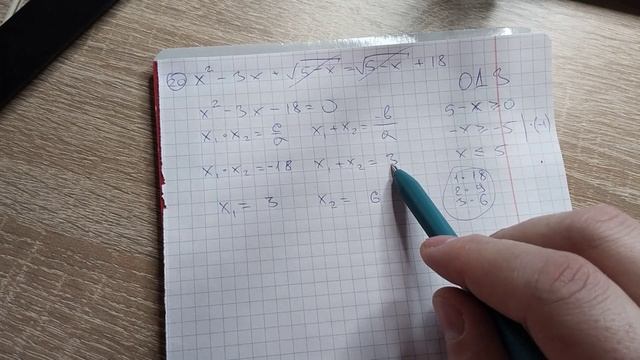 20 x² - 3x + √5-x = √5-x + 18
ОДЗ
x² - 3x - 18 = 0
5 - x ≥ 0
x₁ · x₂ = c/a x₁ + x₂ = -b/a
-x ≥ -5 | · (-1)
x₁ · x₂ = -18 x₁ + x₂ = 3
x ≤ 5
1 · 18
2 · 9
3 · 6
x₁ = 3 x₂ = 6